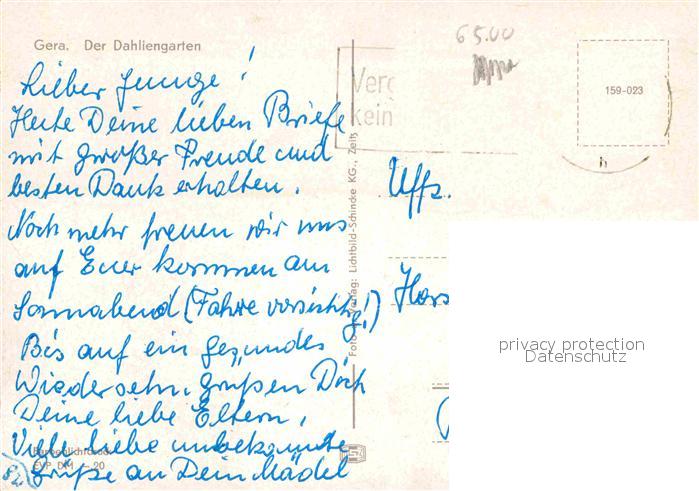 Gera. Der Dahliengarten
Lieber Junge!
Heute Deine lieben Briefe
mit großer Freude und
besten Dank erhalten.
Noch mehr freuen wir uns
auf Euer kommen am
Sonnabend (Fahre vorsichtig!)
Bis auf ein gesundes
Wiedersehn. grüßen Dich
Deine liebe Eltern,
Viele liebe unbekannte
Grüße an Dein Mädel
EVP DM -20
Foto Verlag: Lichtbild-Schincke KG., Zeitz
65.00
Verg
Kein
159-023
h
Uffz.
Hors
privacy protection
Datenschutz